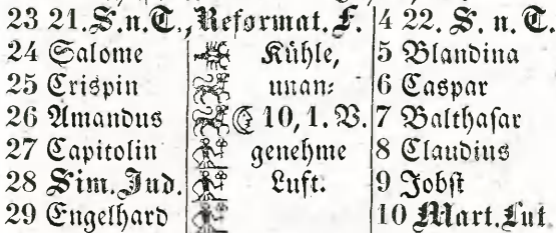 23 21. S. n. T., Reformat. F. 4 22. S. n. T.
24 Salome Kühle, 5 Blandina
25 Crispin unan- 6 Caspar
26 Amandus ☾ 10, 1. V. 7 Balthasar
27 Capitolin genehme 8 Claudius
28 Sim. Jud. Luft. 9 Jobst
29 Engelhard 10 Mart. Lut